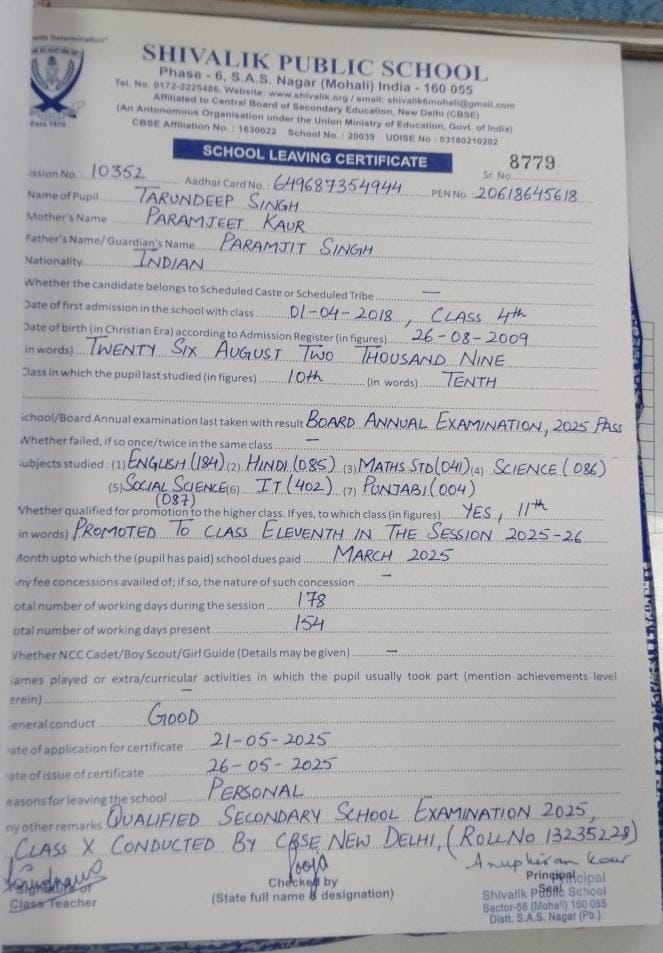 with Determination"
Estd. 1970
SHIVALIK PUBLIC SCHOOL
Phase - 6, S.A.S. Nagar (Mohali) India - 160 055
Tel. No. 0172-2225486, Website: www.shivalik.org / email: shivalik6mohali@gmail.com
Affiliated to Central Board of Secondary Education, New Delhi (CBSE)
(An Antonomous Organisation under the Union Ministry of Education, Govt. of India)
CBSE Affiliation No. : 1630022 School No. : 20039 UDISE No : 03180210202
SCHOOL LEAVING CERTIFICATE
Sr. No. 8779
ission No. : 10352 Aadhar Card No. : 649687354944 PEN No. : 20618645618
Name of Pupil TARUNDEEP SINGH
Mother's Name PARAMJEET KAUR
Father's Name/ Guardian's Name PARAMJIT SINGH
Nationality INDIAN
Whether the candidate belongs to Scheduled Caste or Scheduled Tribe —
Date of first admission in the school with class 01-04-2018, CLASS 4th
Date of birth (in Christian Era) according to Admission Register (in figures) 26-08-2009
in words) TWENTY SIX AUGUST TWO THOUSAND NINE
Class in which the pupil last studied (in figures) 10th (in words) TENTH
School/Board Annual examination last taken with result BOARD ANNUAL EXAMINATION, 2025 PASS
Whether failed, if so once/twice in the same class —
Subjects studied : (1) ENGLISH (184) (2) HINDI (085) (3) MATHS STD (041) (4) SCIENCE (086)
(5) SOCIAL SCIENCE (6) IT (402) (7) PUNJABI (004)
(087)
Whether qualified for promotion to the higher class. If yes, to which class (in figures) YES, 11th
in words) PROMOTED TO CLASS ELEVENTH IN THE SESSION 2025-26
Month upto which the (pupil has paid) school dues paid MARCH 2025
any fee concessions availed of; if so, the nature of such concession —
otal number of working days during the session 178
otal number of working days present 154
Whether NCC Cadet/Boy Scout/Girl Guide (Details may be given) —
Games played or extra/curricular activities in which the pupil usually took part (mention achievements level
erein) —
General conduct GOOD
ate of application for certificate 21-05-2025
ate of issue of certificate 26-05-2025
easons for leaving the school PERSONAL
ny other remarks QUALIFIED SECONDARY SCHOOL EXAMINATION 2025,
CLASS X CONDUCTED BY CBSE NEW DELHI, (ROLL NO 13235228)
Pooja Anupkiran Kaur
Signature of Checked by Principal Principal
Class Teacher (State full name & designation) Seal
Shivalik Public School
Sector-56 (Mohali) 160 055
Distt. S.A.S. Nagar (Pb.)